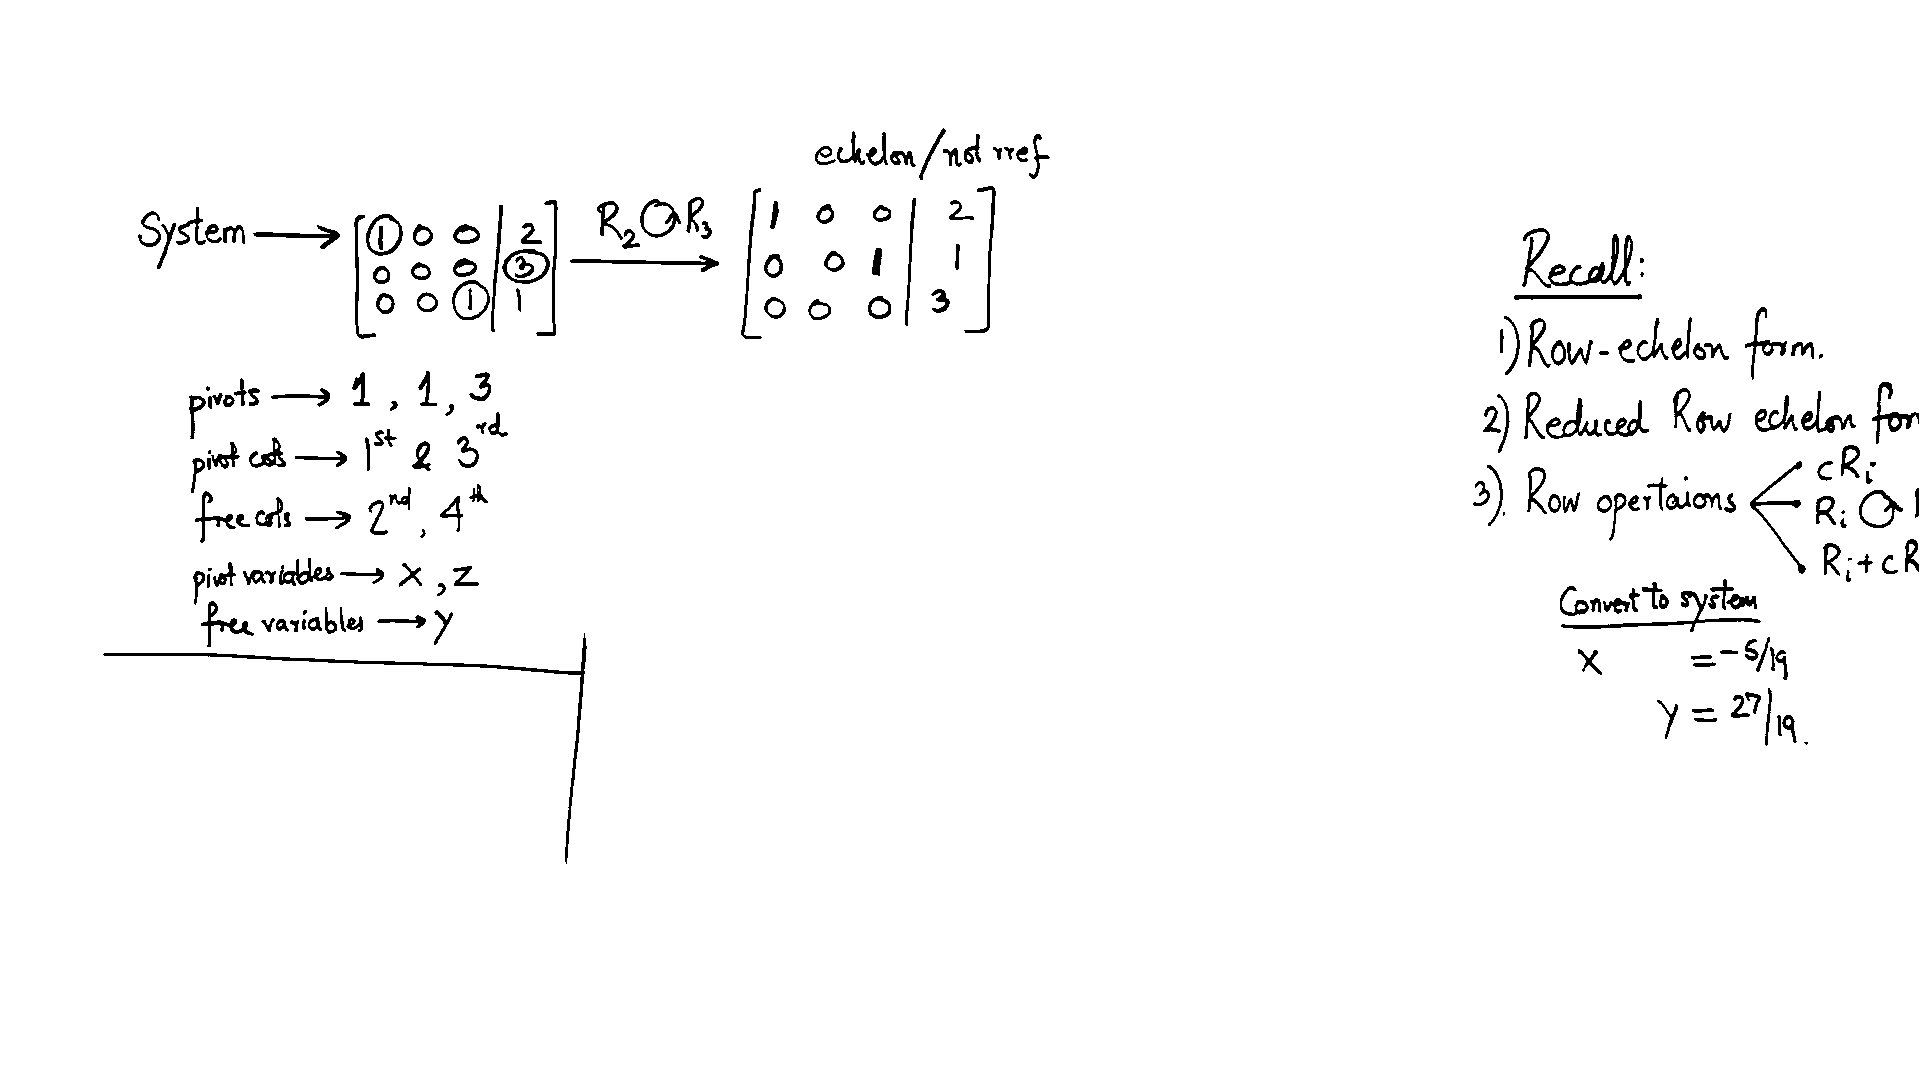 echelon/not rref
System → [ 1 0 0 | 2 ] R₂ ↻ R₃ → [ 1 0 0 | 2 ]
[ 0 0 0 | 3 ] [ 0 0 1 | 1 ]
[ 0 0 1 | 1 ] [ 0 0 0 | 3 ]
pivots → 1 , 1 , 3
pivot cols → 1st & 3rd
free cols → 2nd, 4th
pivot variables → x , z
free variables → y
Recall:
1) Row-echelon form.
2) Reduced Row echelon for
3). Row opertaions
cRi
Ri ↻
Ri + cR
Convert to system
x = -5/19
y = 27/19.